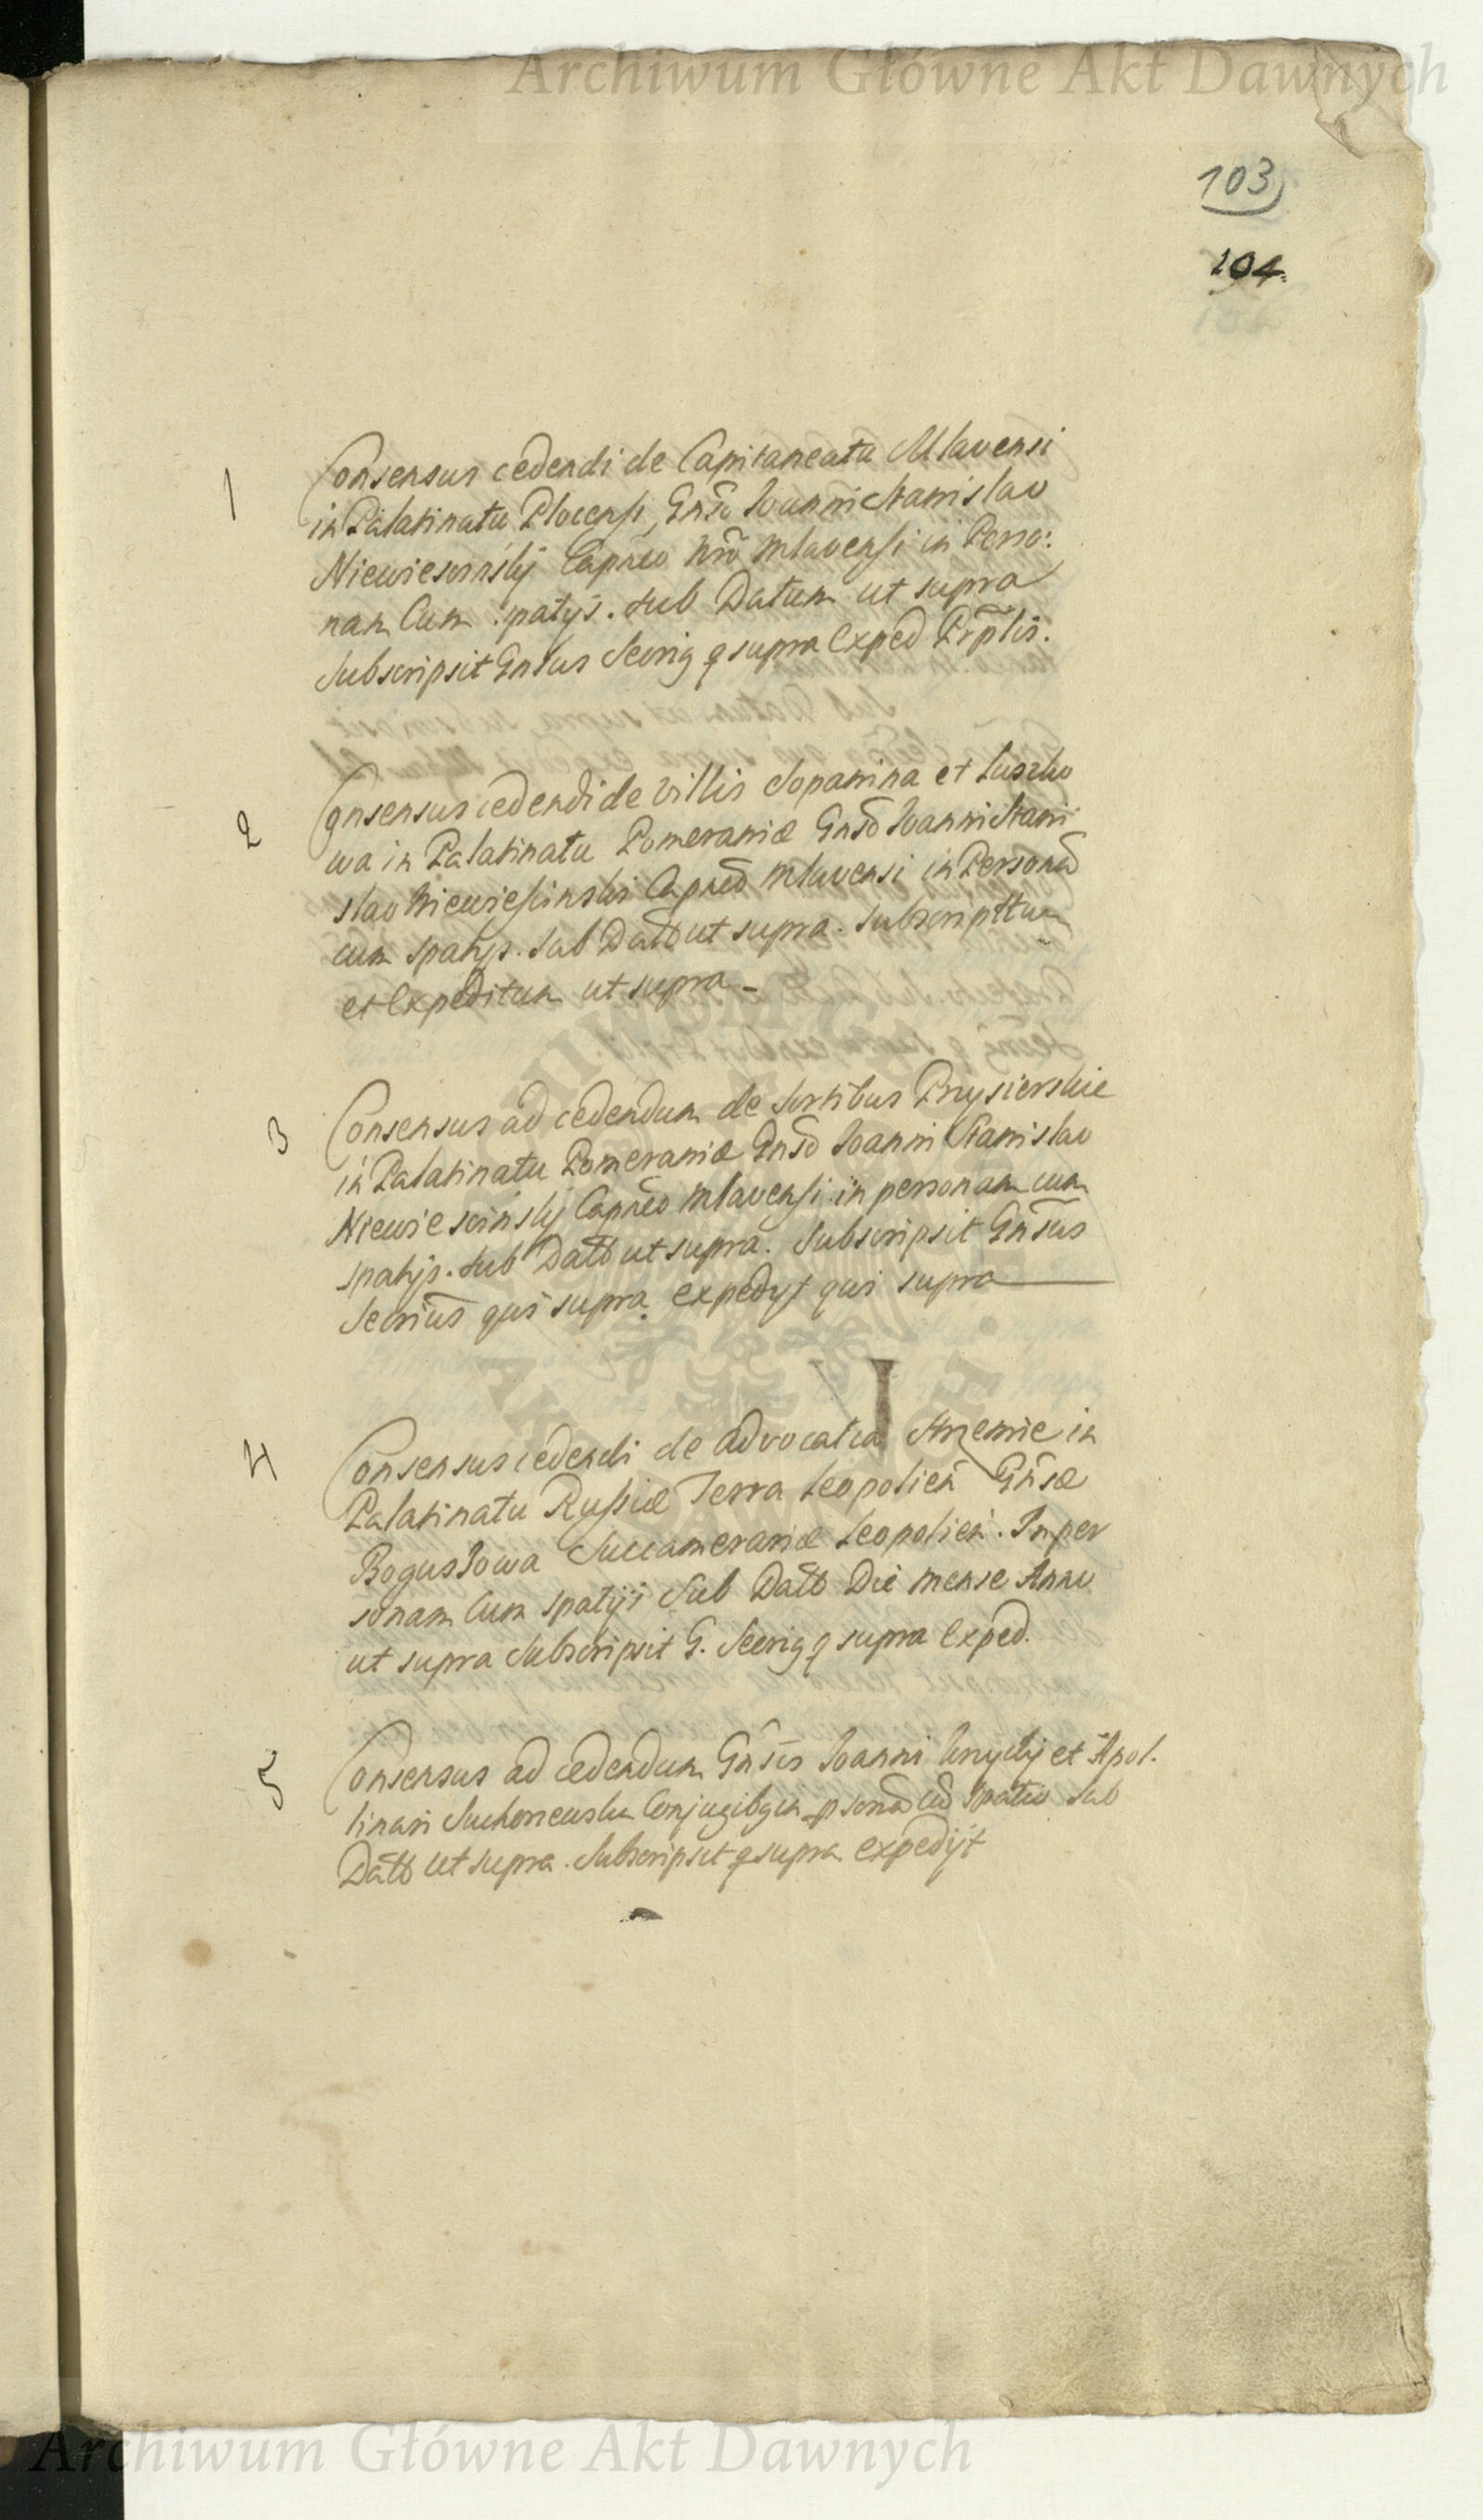 Archiwum Główne Akt Dawnych
103
104
1
Consensus cedendi de Capitaneatu Mlavensi
in Palatinatu Plocensi, Gnso Ioanni Stanislao
Niewiescinskj Capneo Nro Mlavensi in Perso:
nam Cum spatijs. sub Datum ut supra
Subscripsit Gnsus Secrig q supra Exped
2
Consensus cedendi de Villis Sopanina et Luszko
wa in Palatinatu Pomeraniæ Gnso Ioanni Stani
slao Niewiescinski Capneo Mlavensi in Personã
cum spatijs. Sub Datto ut supra. Subscripttum
et Expeditum ut supra -
3
Consensus ad cedendum de Sortibus Przysierskie
in Palatinatu Pomeraniæ Gnso Ioanni Stanislao
Niewiescinskj Capneo Mlavensi in personam cum
spatijs. Sub Datto ut supra. Subscripsit Gnsus
Secrius qui supra expedyt qui supra
4
Consensus cedendi de Advocatia in
Palatinatu Russiæ Terra Leopolien Gnsæ
Bogussowa Succamerariæ Leopolien. In per
sonam Cum spatijs Sub Datto Die mense Anno
ut supra Subscripsit G. Secrig q supra Exped.
5
Consensus ad cedendum Gnsis Ioanni et Apol.
linari Conjugibq in psonã cũ spatio Sub
Datto ut supra. Subscripsit q supra expedijt
Archiwum Główne Akt Dawnych